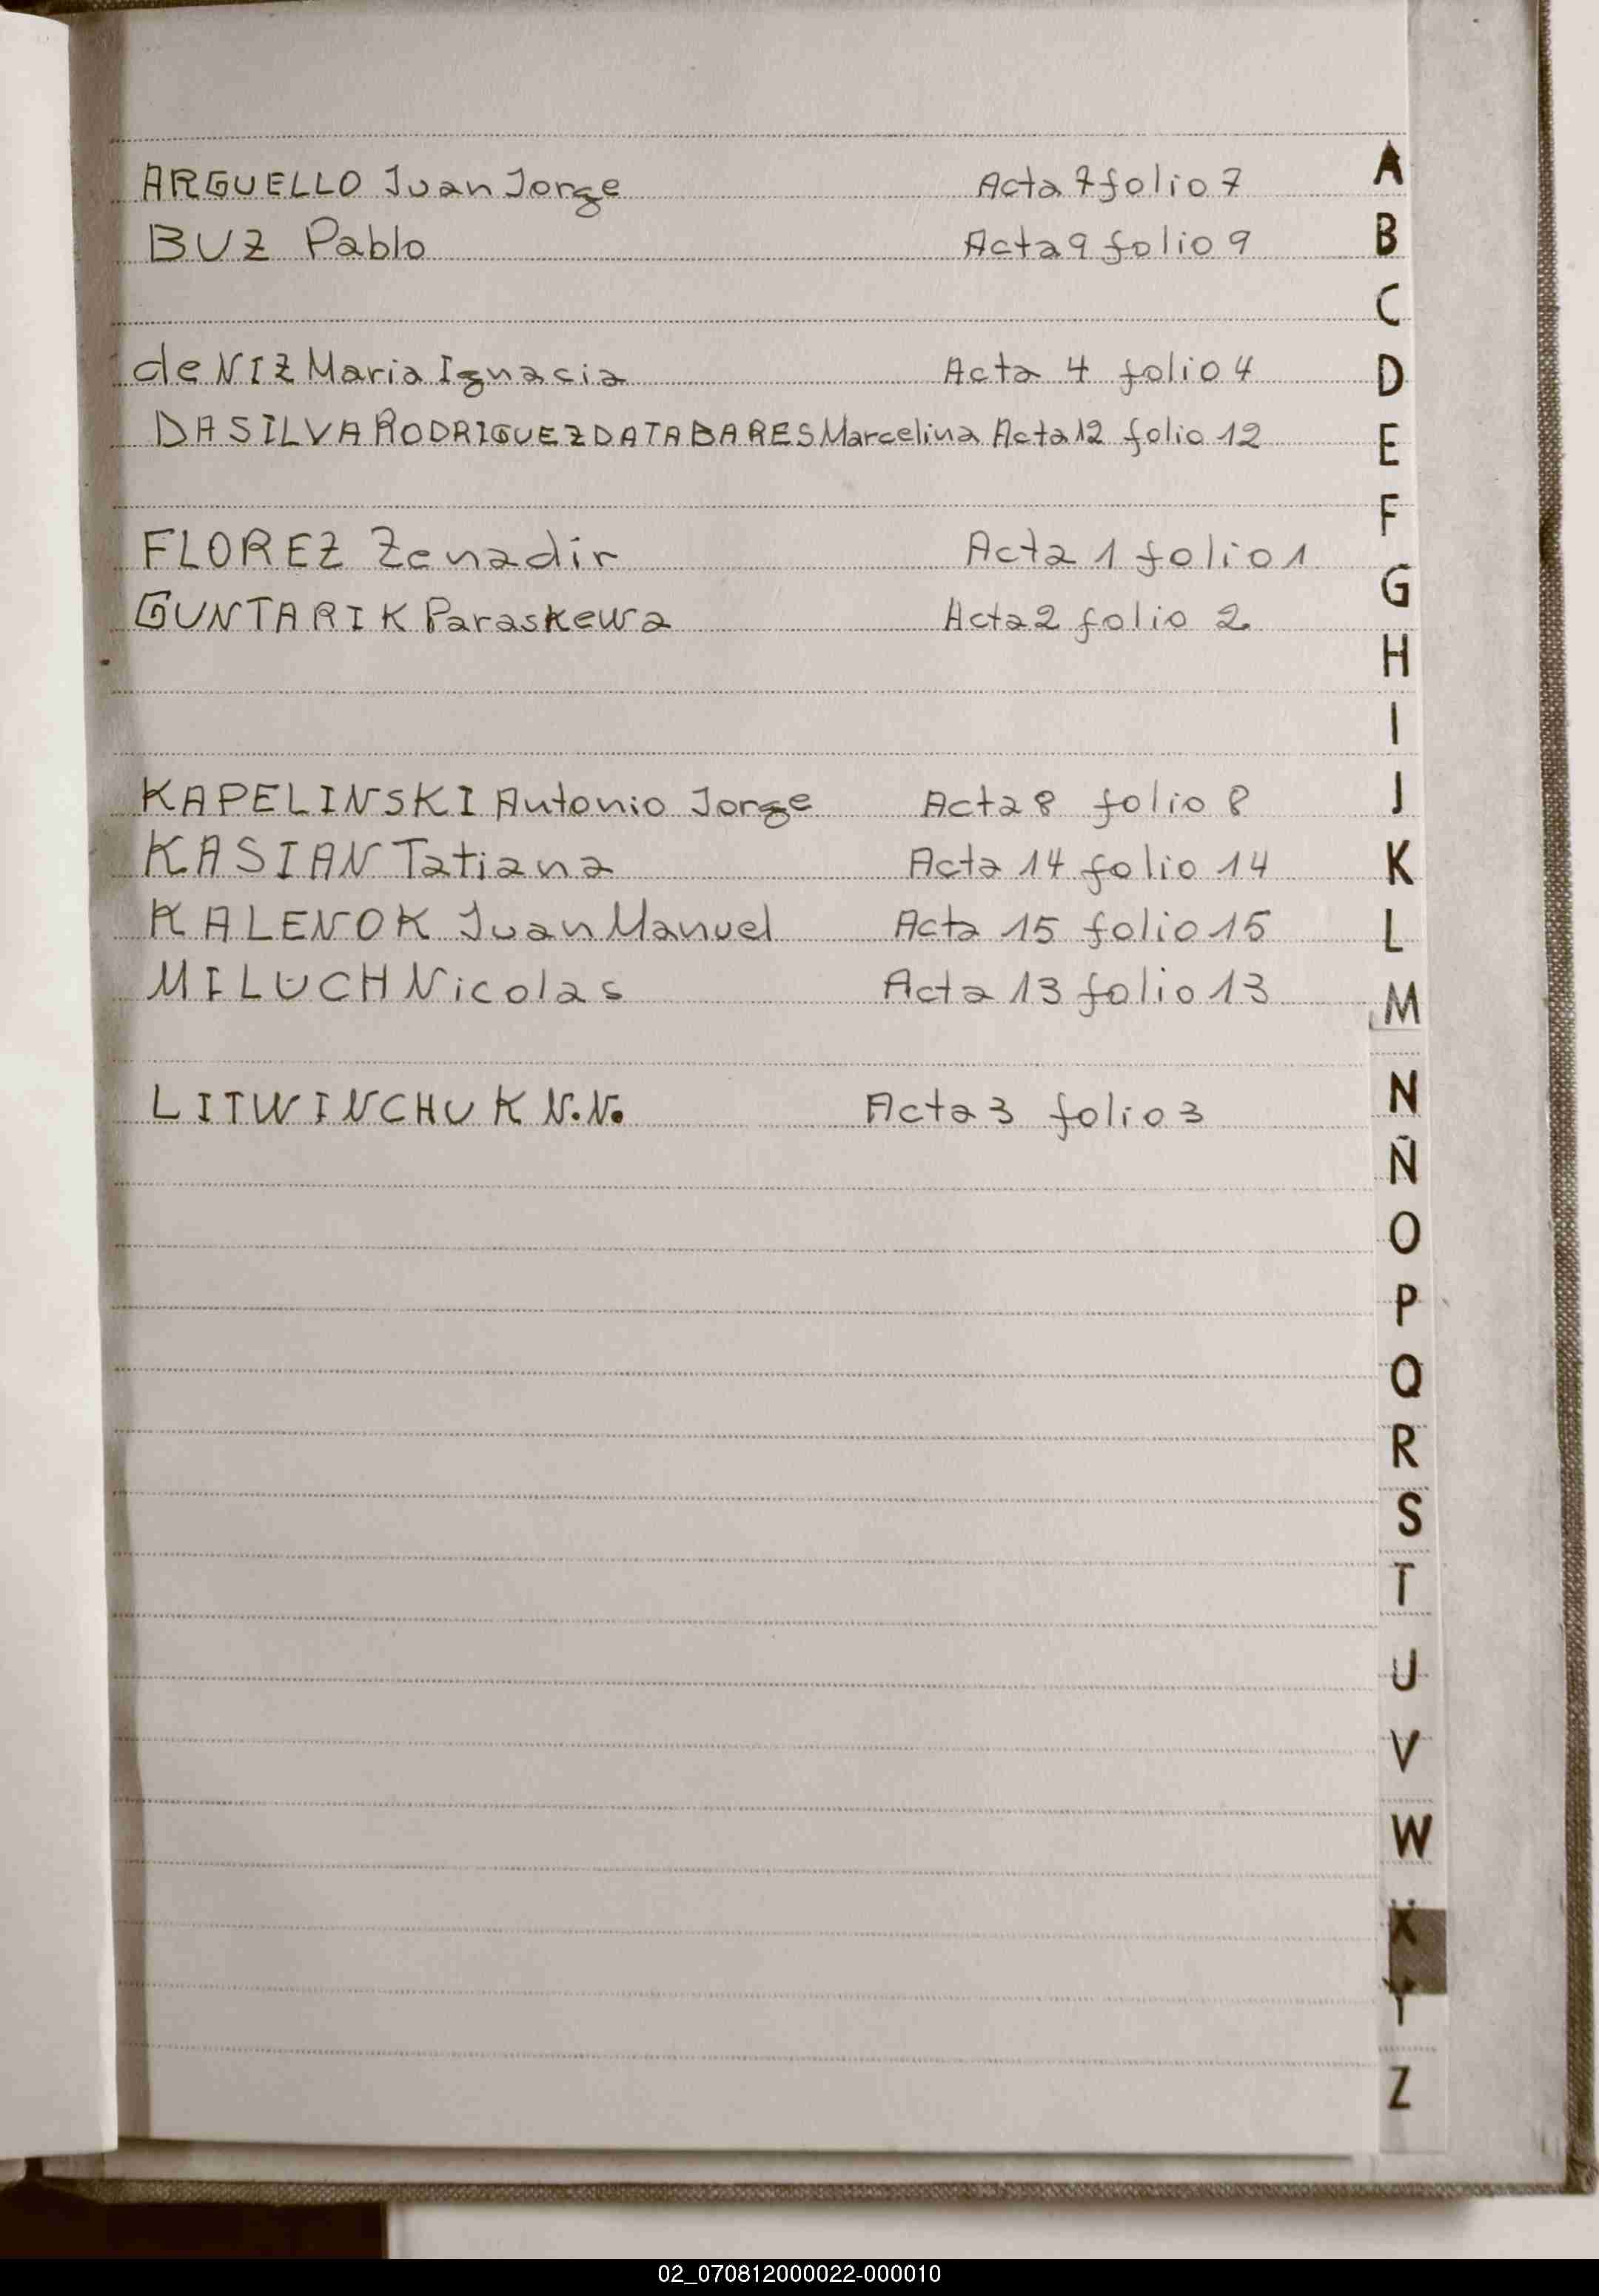 ARGUELLO Juan Jorge Acta 7 folio 7
BUZ Pablo Acta 9 folio 9
de NIZ Maria Ignacia Acta 4 folio 4
DA SILVA RODRIGUEZ DA TABARES Marcelina Acta 12 folio 12
FLOREZ Zenadir Acta 1 folio 1
GUNTARIK Paraskewa Acta 2 folio 2
KAPELINSKI Antonio Jorge Acta 8 folio 8
KASIAN Tatiana Acta 14 folio 14
KALENOK Juan Manuel Acta 15 folio 15
MILUCH Nicolas Acta 13 folio 13
LITWINCHUK N.N. Acta 3 folio 3
A
B
C
D
E
F
G
H
I
J
K
L
M
N
Ñ
O
P
Q
R
S
T
U
V
W
X
Y
Z
02_070812000022-000010